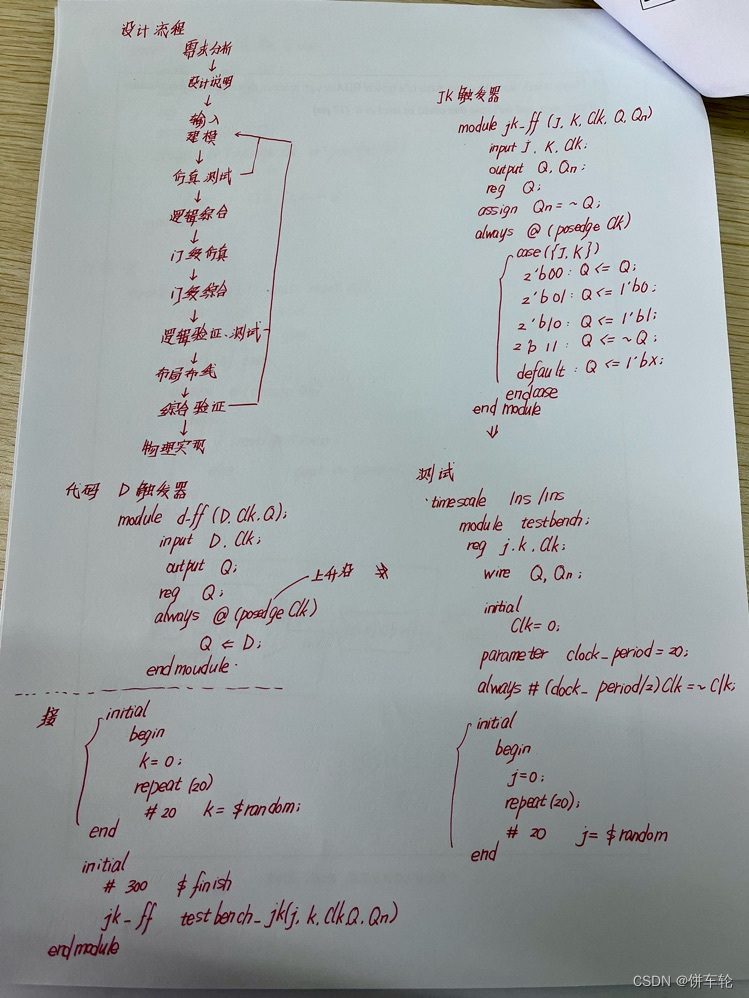 设计流程
需求分析
↓
设计说明
↓
输入
建模
↓
仿真测试
↓
逻辑综合
↓
门级仿真
↓
门级综合
↓
逻辑验证、测试
↓
布局布线
↓
综合验证
↓
物理实现
JK触发器
module jk_ff (J, K, Clk, Q, Qn)
input J, K, Clk;
output Q, Qn;
reg Q;
assign Qn = ~Q;
always @ (posedge Clk)
case({J,K})
2'b00: Q <= Q;
2'b01: Q <= 1'b0;
2'b10: Q <= 1'b1;
2'b11: Q <= ~Q;
default: Q <= 1'bx;
endcase
end module
⇓
代码 D触发器
module d-ff (D, Clk, Q);
input D, Clk;
output Q;
reg Q;
always @ (posedge Clk) 上升沿
Q <= D;
end moudule
测试
`timescale 1ns/1ns
module testbench;
reg j, k, Clk;
wire Q, Qn;
initial
Clk = 0;
parameter clock_period = 20;
always # (clock_period/2) Clk = ~Clk;
initial
begin
j=0;
repeat (20);
# 20 j = $random
end
接
initial
begin
k=0;
repeat (20)
# 20 k = $random;
end
initial
# 300 $finish
jk_ff testbench_jk(j, k, Clk, Q, Qn)
endmodule
CSDN @饼车轮